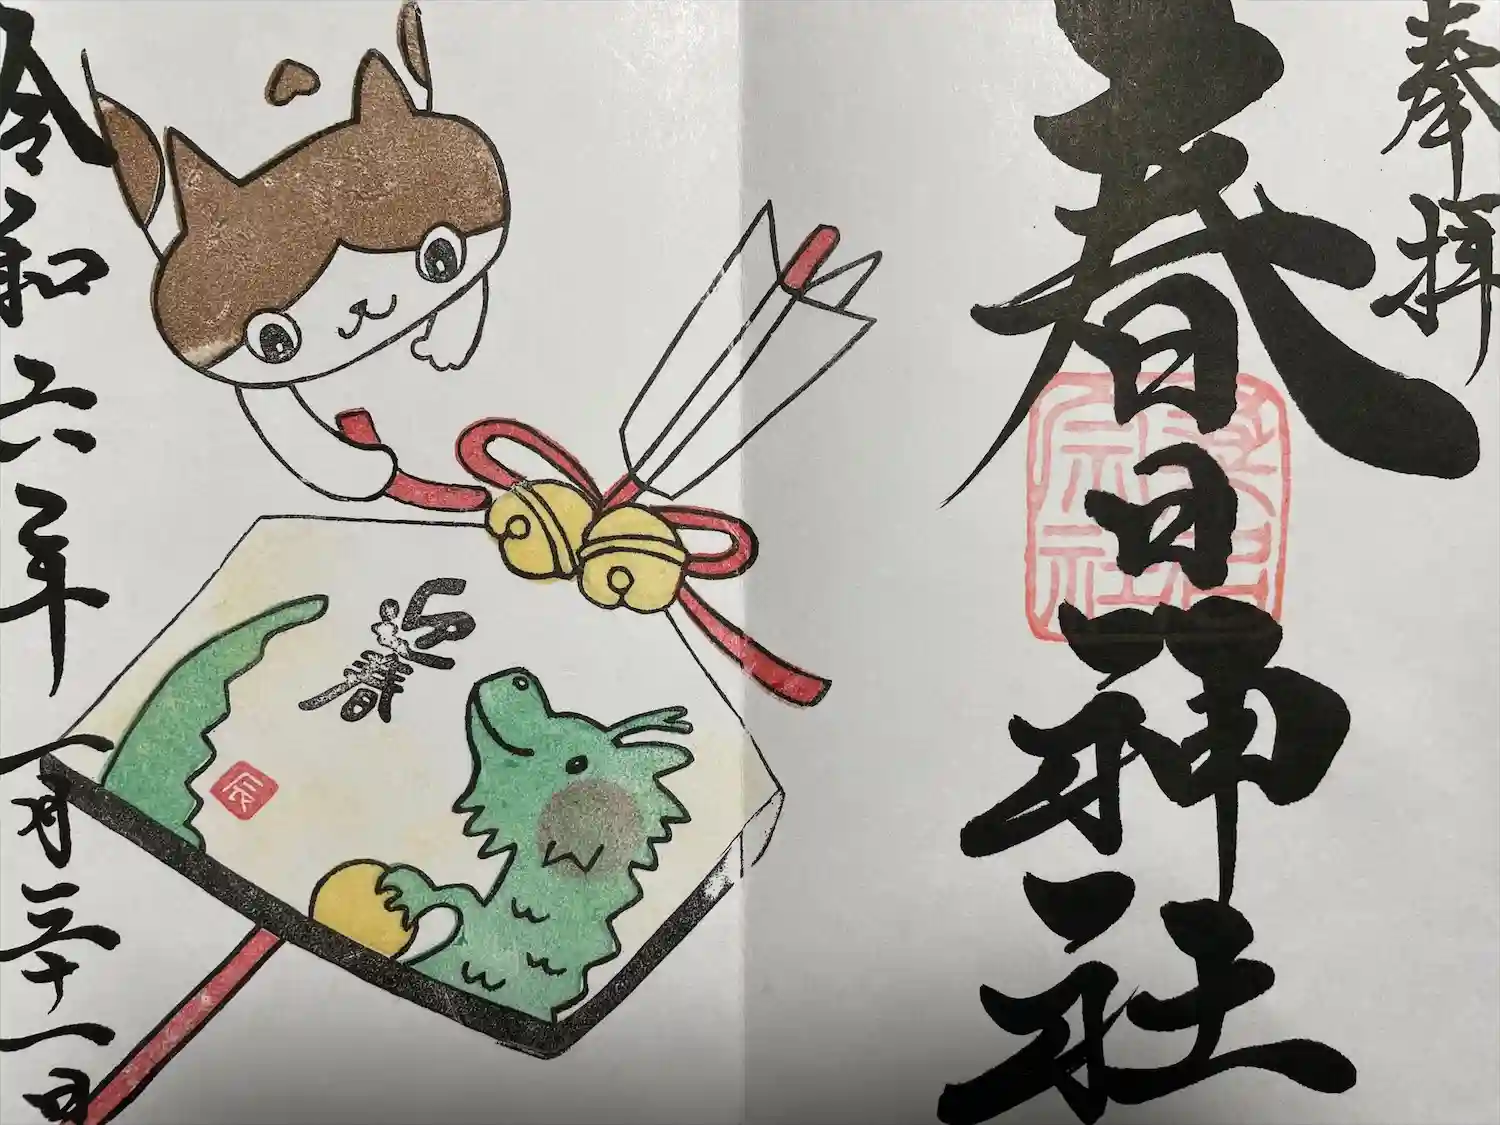 奉拝
春日神社
春日
神社
迎春
辰
令和六年一月三十一日